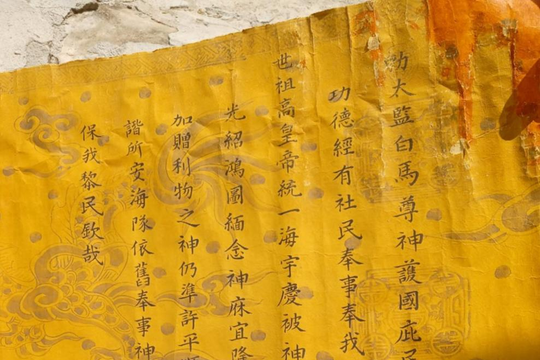 太監白馬尊神護國庇
功德經有社民奉事我
世祖高皇帝統一海宇慶被神
光紹鴻圖緬念神庥宜隆
加贈利物之神仍準許平
諧所安海隊依舊奉事神
保我黎民欽哉